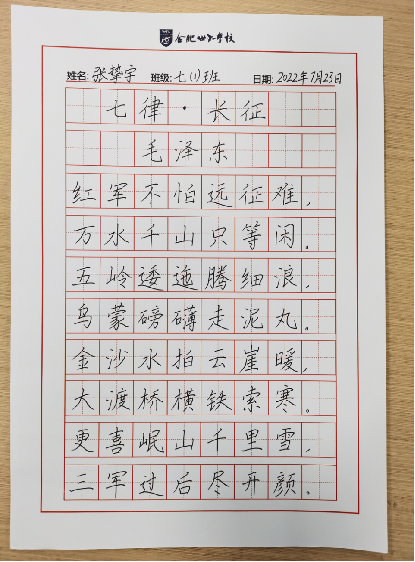 合肥世外学校
姓名: 张挚宇 班级: 七(1)班 日期: 2022年1月23日
七律·长征
毛泽东
红军不怕远征难,
万水千山只等闲。
五岭逶迤腾细浪,
乌蒙磅礴走泥丸。
金沙水拍云崖暖,
大渡桥横铁索寒。
更喜岷山千里雪,
三军过后尽开颜。